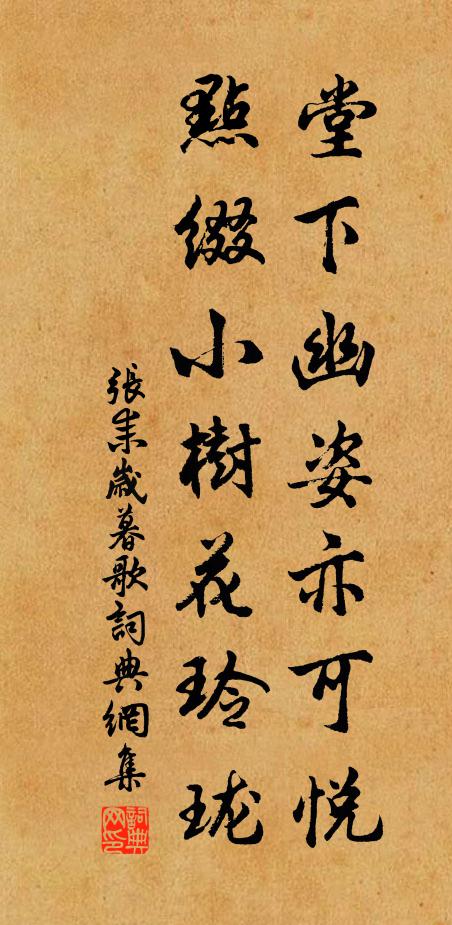 堂下幽姿亦可悦
點綴小樹花玲瓏
張耒歲暮歌詞典網集
詞典網印